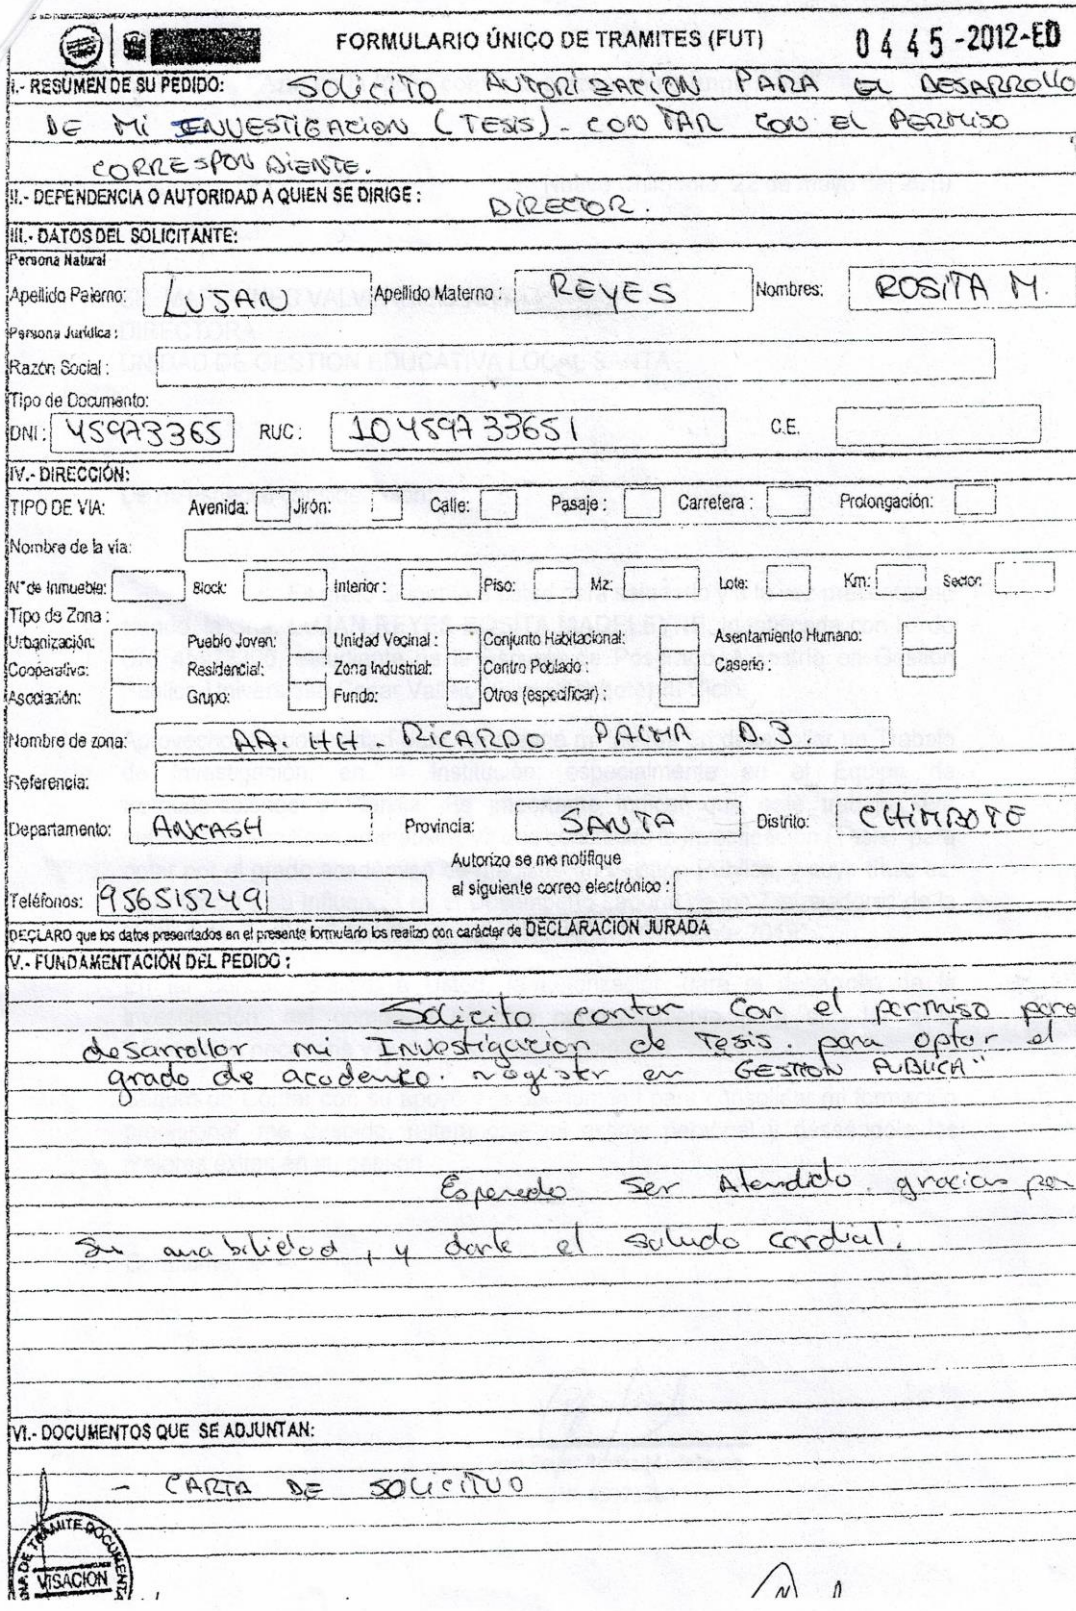 FORMULARIO ÚNICO DE TRAMITES (FUT) 0445-2012-ED
I.- RESUMEN DE SU PEDIDO: SOLICITO AUTORIZACIÓN PARA EL DESARROLLO
DE MI INVESTIGACION (TESIS) - CONTAR CON EL PERMISO
CORRESPONDIENTE.
II.- DEPENDENCIA O AUTORIDAD A QUIEN SE DIRIGE: DIRECTOR.
III.- DATOS DEL SOLICITANTE:
Persona Natural
Apellido Paterno: LUJAN Apellido Materno: REYES Nombres: ROSITA M.
Persona Jurídica:
DIRECTORA
Razón Social: UNIDAD DE GESTION EDUCATIVA LOCAL SANTA
Tipo de Documento:
DNI: 45973365 RUC: 10459733651 C.E.
IV.- DIRECCIÓN:
TIPO DE VIA: Avenida: Jirón: Calle: Pasaje: Carretera: Prolongación:
Nombre de la vía:
N° de Inmueble: Block: Interior: Piso: Mz: Lote: Km: Sector:
Tipo de Zona:
Urbanización: Pueblo Joven: Unidad Vecinal: Conjunto Habitacional: Asentamiento Humano:
Cooperativa: Residencial: Zona Industrial: Centro Poblado: Caserío:
Asociación: Grupo: Fundo: Otros (especificar):
Nombre de zona: AA. HH. RICARDO PALMA D.3.
Referencia:
Departamento: ANCASH Provincia: SANTA Distrito: CHIMBOTE
Autorizo se me notifique
Teléfonos: 956515249 al siguiente correo electrónico:
DECLARO que los datos presentados en el presente formulario los realizo con carácter de DECLARACIÓN JURADA
V.- FUNDAMENTACIÓN DEL PEDIDO:
Solicito contar con el permiso para
desarrollar mi Investigación de Tesis para optar el
grado de academico magister en GESTION PUBLICA"
Esperado ser Atendido. gracias por
su amabilidad, y darle el saludo cordial.
VI.- DOCUMENTOS QUE SE ADJUNTAN:
- CARTA DE SOLICITUD
DE TRAMITE DOCUMENTA
VISACION